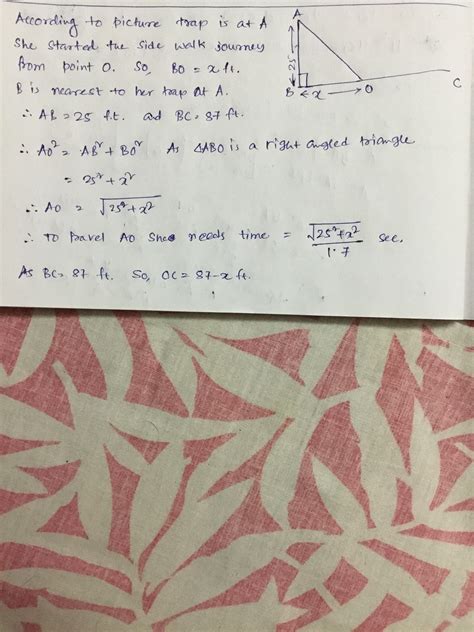 According to picture trap is at A
She started the side walk journey
from point O. So, BO = x ft.
B is nearest to her trap at A.
∴ AB = 25 ft. and BC = 87 ft.
∴ AO² = AB² + BO² As ΔABO is a right angled triangle
= 25² + x²
∴ AO = √25² + x²
∴ To travel AO She needs time = √25² + x² / 1.7 sec.
As BC = 87 ft. So, OC = 87 - x ft.
A
25
B ← x → O
C